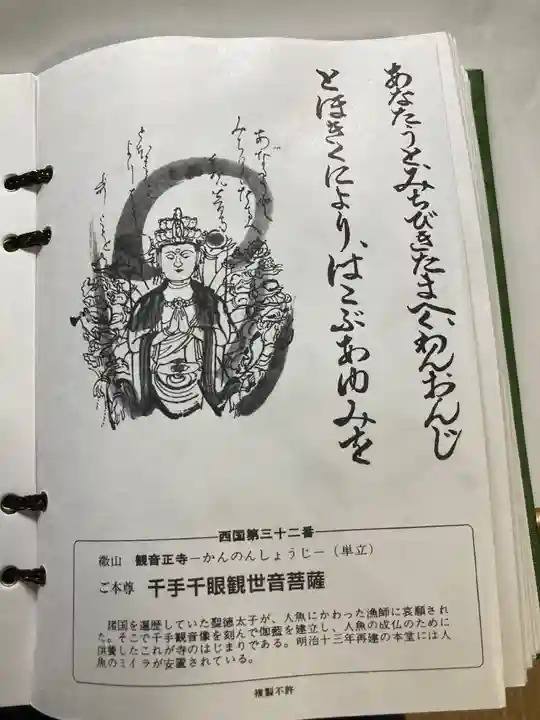 あなたうと、みちびきたまへ、くわんおんじ
とほきくによりはこぶあゆみを
西国第三十二番
繖山 観音正寺ーかんのんしょうじー(単立)
ご本尊 千手千眼観世音菩薩
諸国を遍歴していた聖徳太子が、人魚にかわった漁師に哀願され
た。そこで千手観音像を刻んで伽藍を建立し、人魚の成仏のために
供養したこれが寺のはじまりである。明治十三年再建の本堂には人
魚のミイラが安置されている。
複製不許